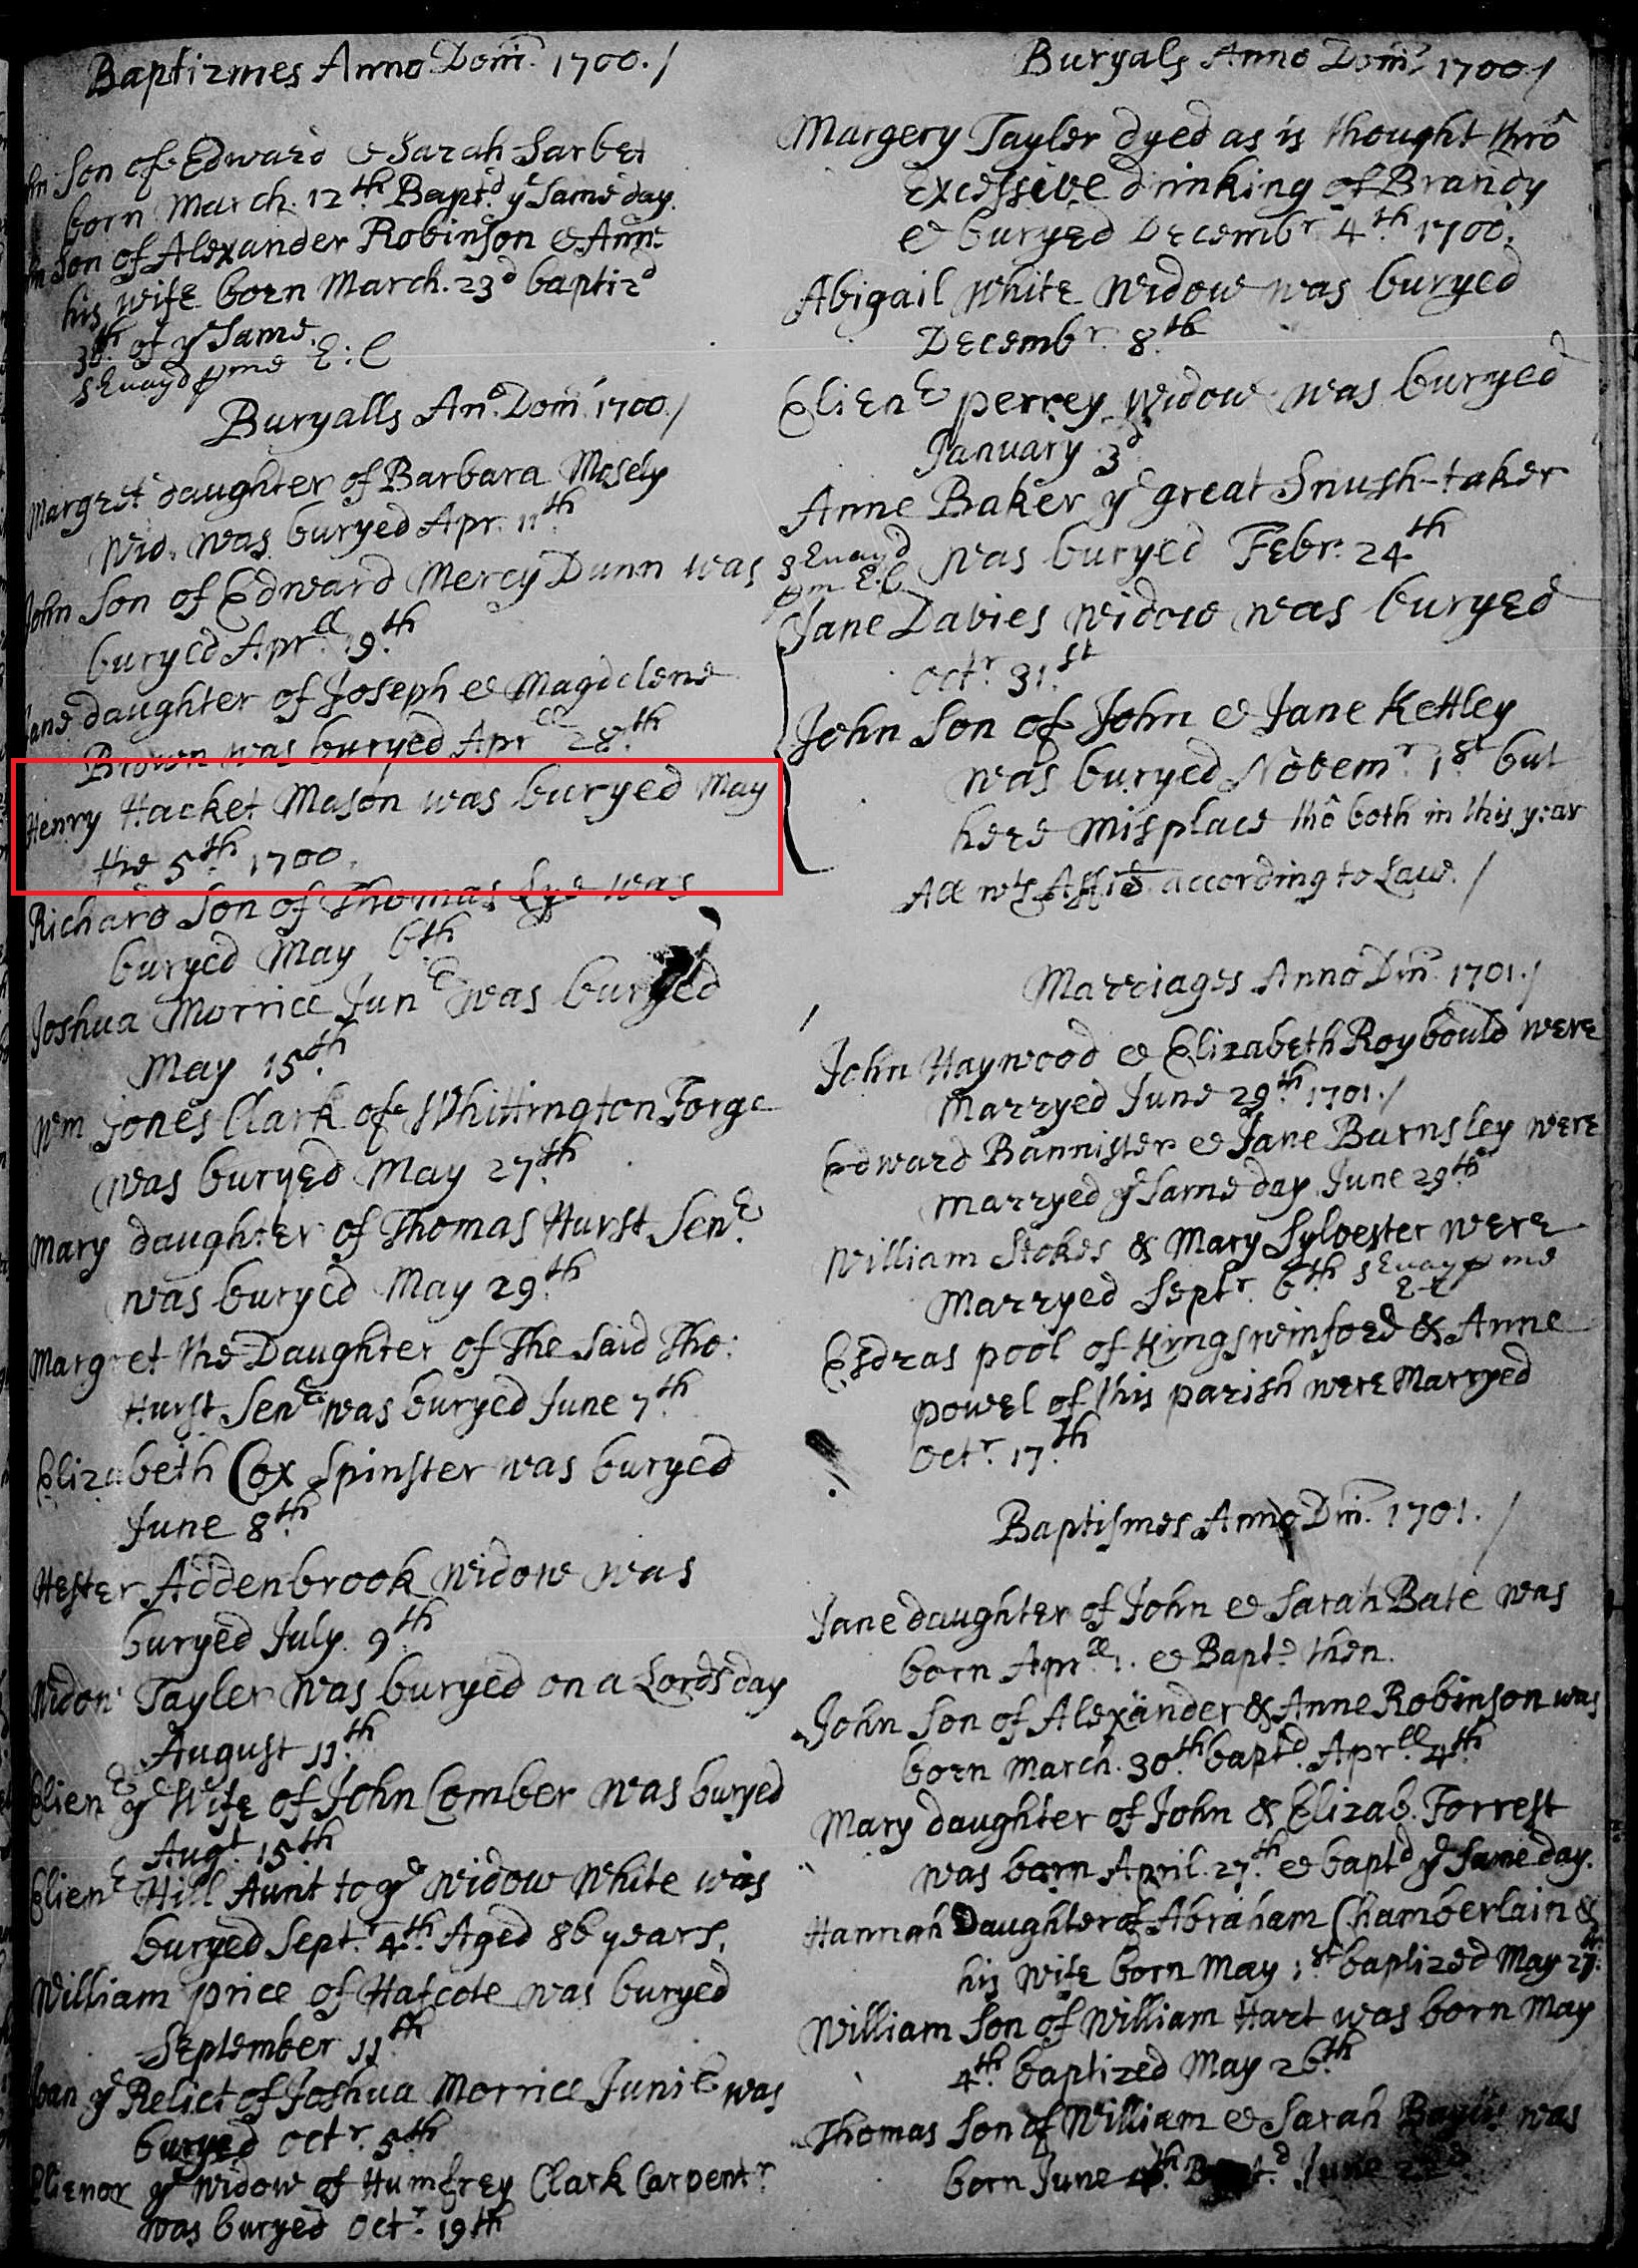 Baptizmes Anno Dom̃. 1700./
Son of Edward & Sarah Sarbet
born March. 12th Bapt.d ye Same day.
Son of Alexander Robinson & Anne
his wife born March. 23d baptiz.d
30th of ye Same.
E: C
Buryalls An.o Dom̃. 1700./
Margret daughter of Barbara Mosely
Wid. was buryed Apr. 11th
John Son of Edward Mercy Dunn was
buryed Aprll. 19.th
Jane daughter of Joseph & Magdelene
Brown was buryed Aprll 28.th
Henry Hacket Mason was buryed May
the 5.th 1700.
Richard Son of Thomas Lye was
buryed May 6th
Joshua Morrice Junr was buryed
May 15.th
Wm Jones Clark of Whittington Forge
was buryed May 27.th
Mary daughter of Thomas Hurst Senr.
was buryed May 29.th
Margret the Daughter of The Said Tho:
Hurst Senr was buryed June 7.th
Elizabeth Cox Spinster was buryed
June 8.th
Hester Addenbrook Widow was
buryed July. 9.th
Widow Tayler was buryed on a Lords day
August 11.th
Elienr ye Wife of John Comber was buryed
Augt. 15.th
Elienr Hill Aunt to ye Widow White was
buryed Sept.r 4.th Aged 86 years.
William price of Hafcote was buryed
September 11.th
Joan ye Relict of Joshua Morrice Junir was
buryed Octr. 5.th
Elienor ye Widow of Humfrey Clark Carpentr.
was buryed Octr. 19th
Buryals Anno Dom̃. 1700./
Margery Tayler dyed as is thought thrô
excessive drinking of Brandy
& buryed Decembr. 4.th 1700.
Abigail White Widow was buryed
Decembr. 8.th
Elienr perrey Widow was buryed
January 3d
Anne Baker ye great Snush-taker
was buryed Febr. 24.th
E.C.
Jane Davies Widow was buryed
Octr. 31.st
John Son of John & Jane Kettley
was buryed Novemr. 1st but
here misplact thô both in this year
All wth Affid. according to Law. /
Marriages Anno Dm̃. 1701./
John Haywood & Elizabeth Roybould were
Marryed June 29.th 1701./
Edward Bannister & Jane Barnsley were
Marryed ye Same day June 29th
William Stokes & Mary Sylvester were
Marryed Septr. 6th
E-C
Esdras pool of Kingswinford & Anne
powel of this parish were Marryed
Octr. 17.th
Baptismes Anno Dm̃. 1701. /
Jane daughter of John & Sarah Bate was
born Aprll 1. & Bapt.d then.
John Son of Alexander & Anne Robinson was
born March. 30.th bapt.d Aprll 4th
Mary daughter of John & Elizab. Forrest
was born April. 27.th & bapt.d ye Same day.
Hannah Daughter of Abraham Chamberlain &
his wife born May 1st baptized May 27.th
William Son of William Hart was born May
4.th baptized May 26.th
Thomas Son of William & Sarah was
born June June